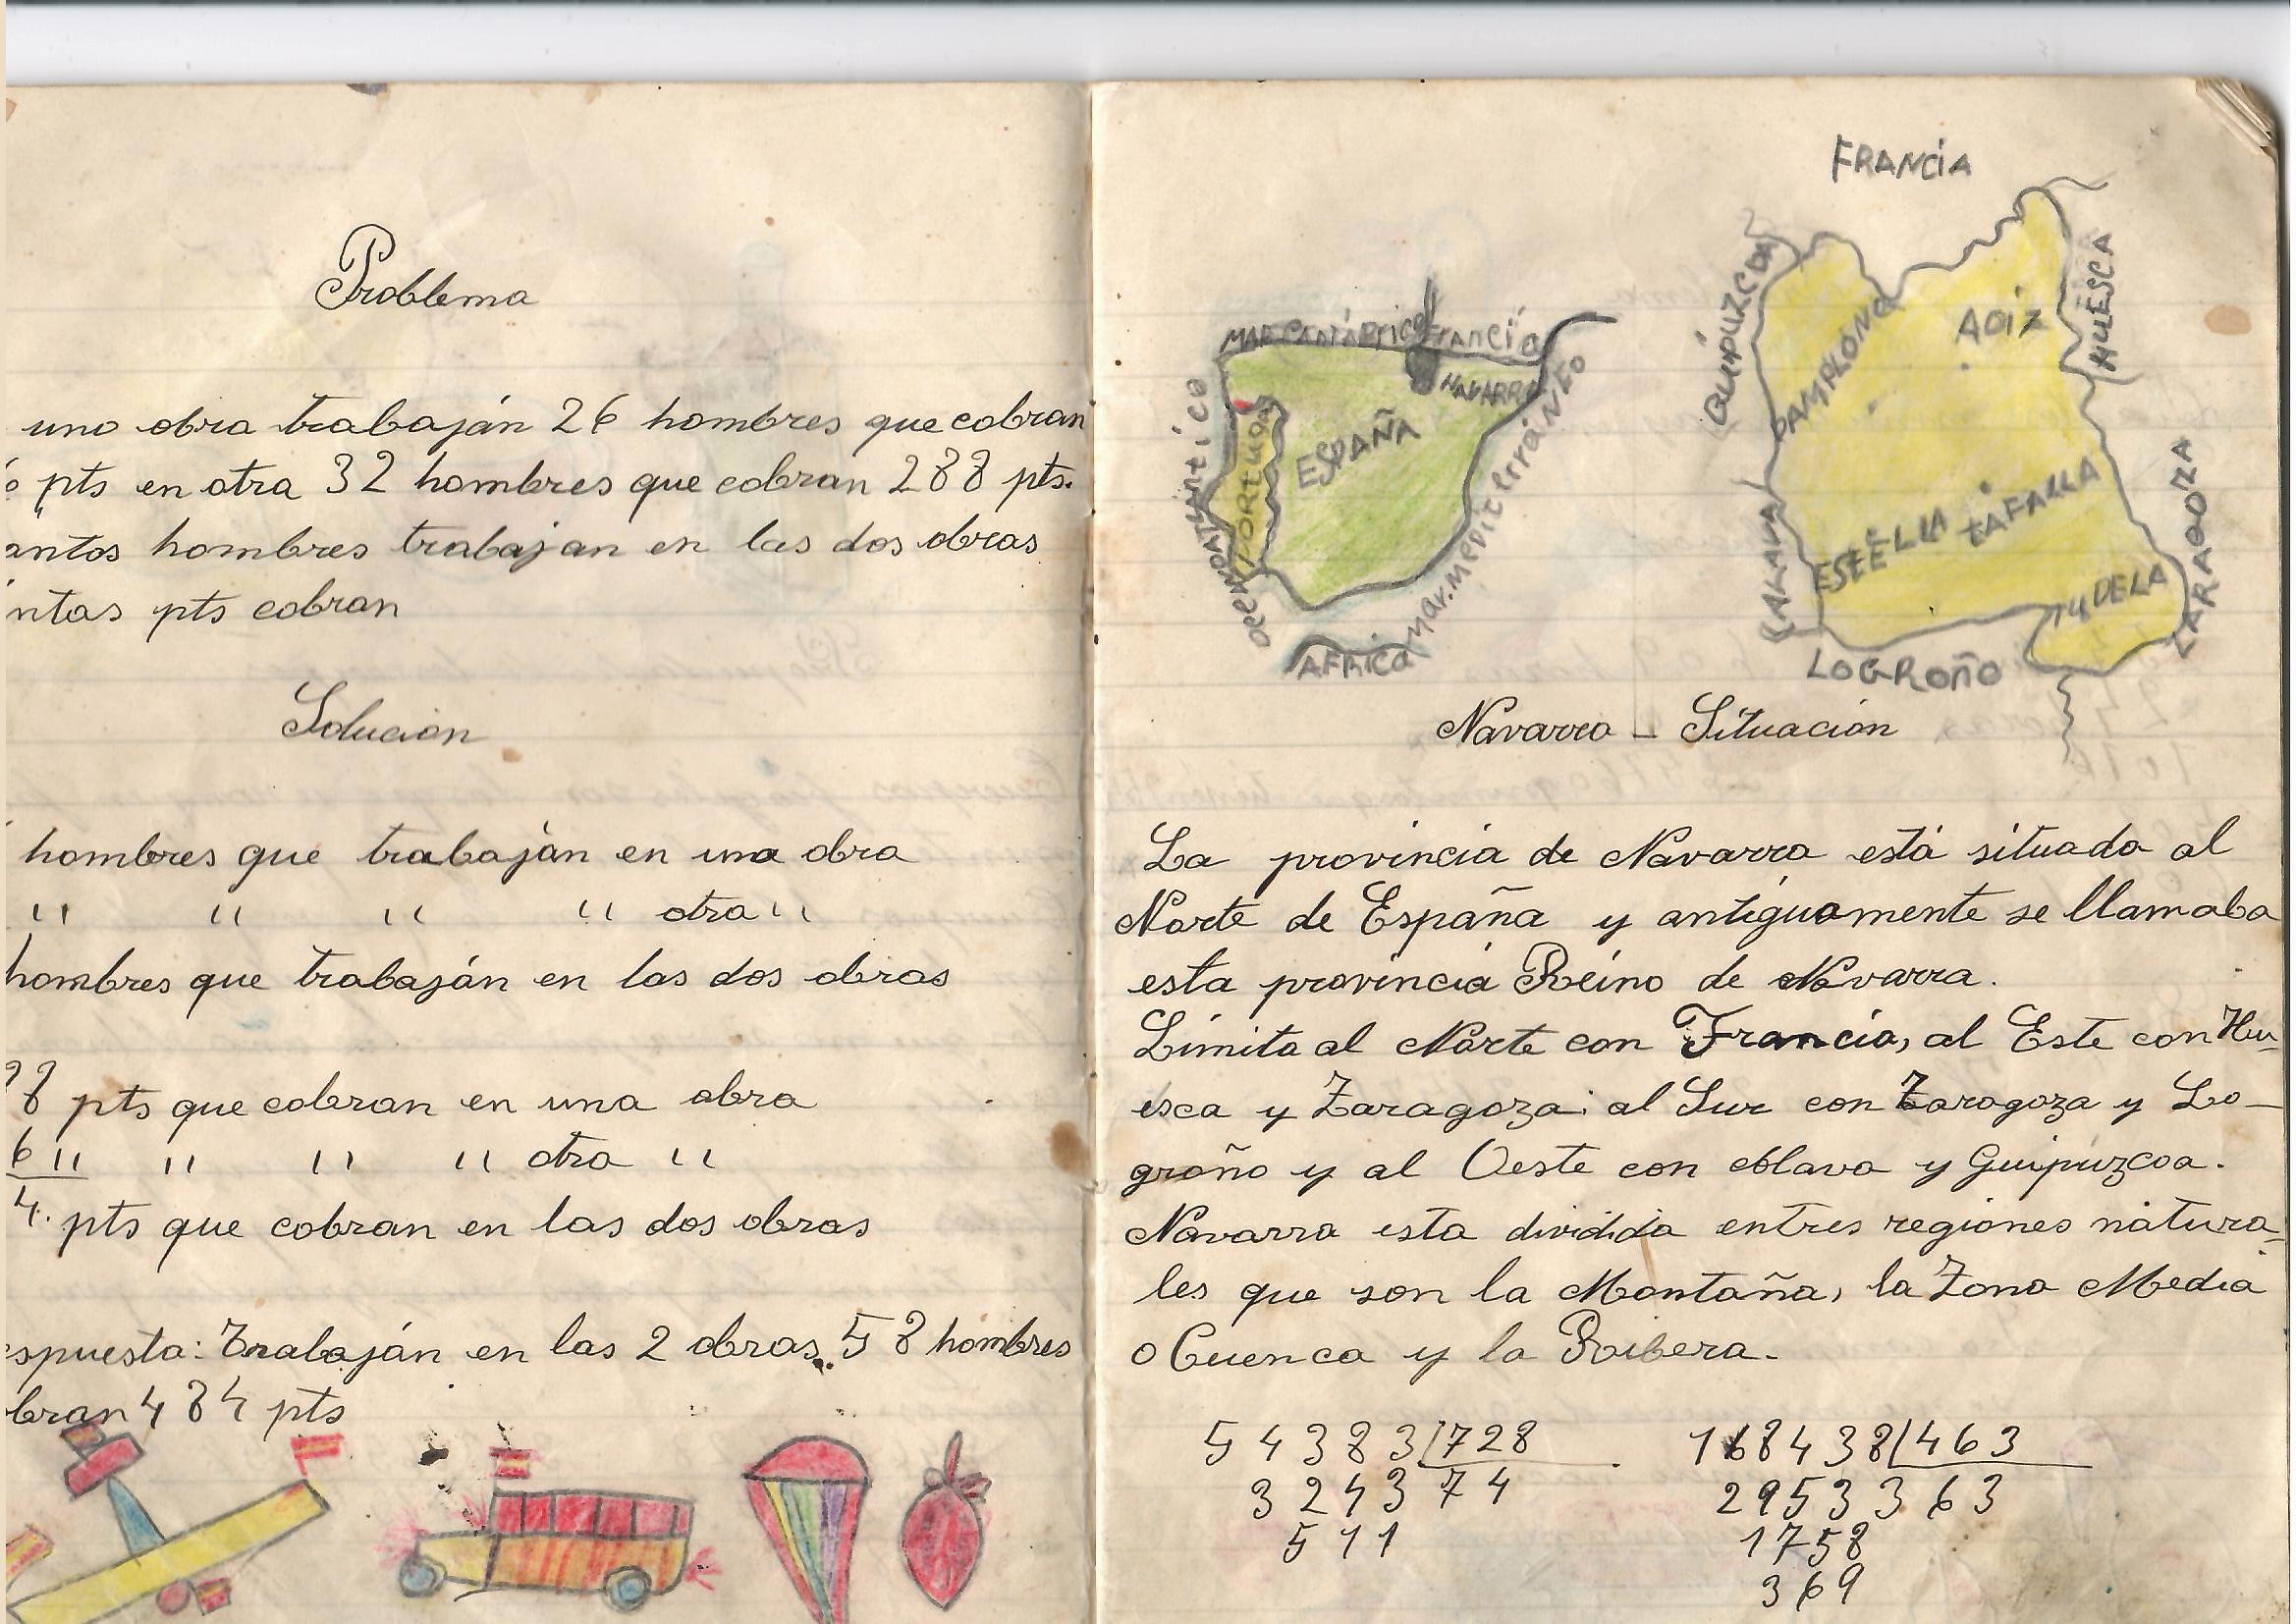 Problema
uno obra trabaján 26 hombres que cobran
6 pts en otra 32 hombres que cobran 288 pts.
antos hombres trabajan en las dos obras
ntas pts cobran
Solución
hombres que trabaján en una obra
" " " " otra "
hombres que trabaján en las dos obras
98 pts que cobran en una obra
6 " " " " otra "
4. pts que cobran en las dos obras
espuesta: Trabaján en las 2 obras. 58 hombres
obran 484 pts
FRANCIA
GUIPUZCOA
HUESCA
PAMPLONA
AOIZ
ESTELLA
TAFALLA
TUDELA
ALAVA
ZARAGOZA
LOGROÑO
MAR CANTABRICO
FRANCIA
NAVARRA
ESPAÑA
PORTUGAL
OCEANO ATLANTICO
MAR MEDITERRÁNEO
AFRICA
Navarra - Situación
La provincia de Navarra está situada al
Norte de España y antiguamente se llamaba
esta provincia Reino de Navarra.
Limita al Norte con Francia, al Este con Hu-
esca y Zaragoza; al Sur con Zaragoza y Lo-
groño y al Oeste con Alava y Guipuzcoa.
Navarra esta dividida entres regiones natura-
les que son la Montaña, la Zona Media
o Cuenca y la Ribera.
54383 728
3243 74
511
168438 463
29533 363
1758
369